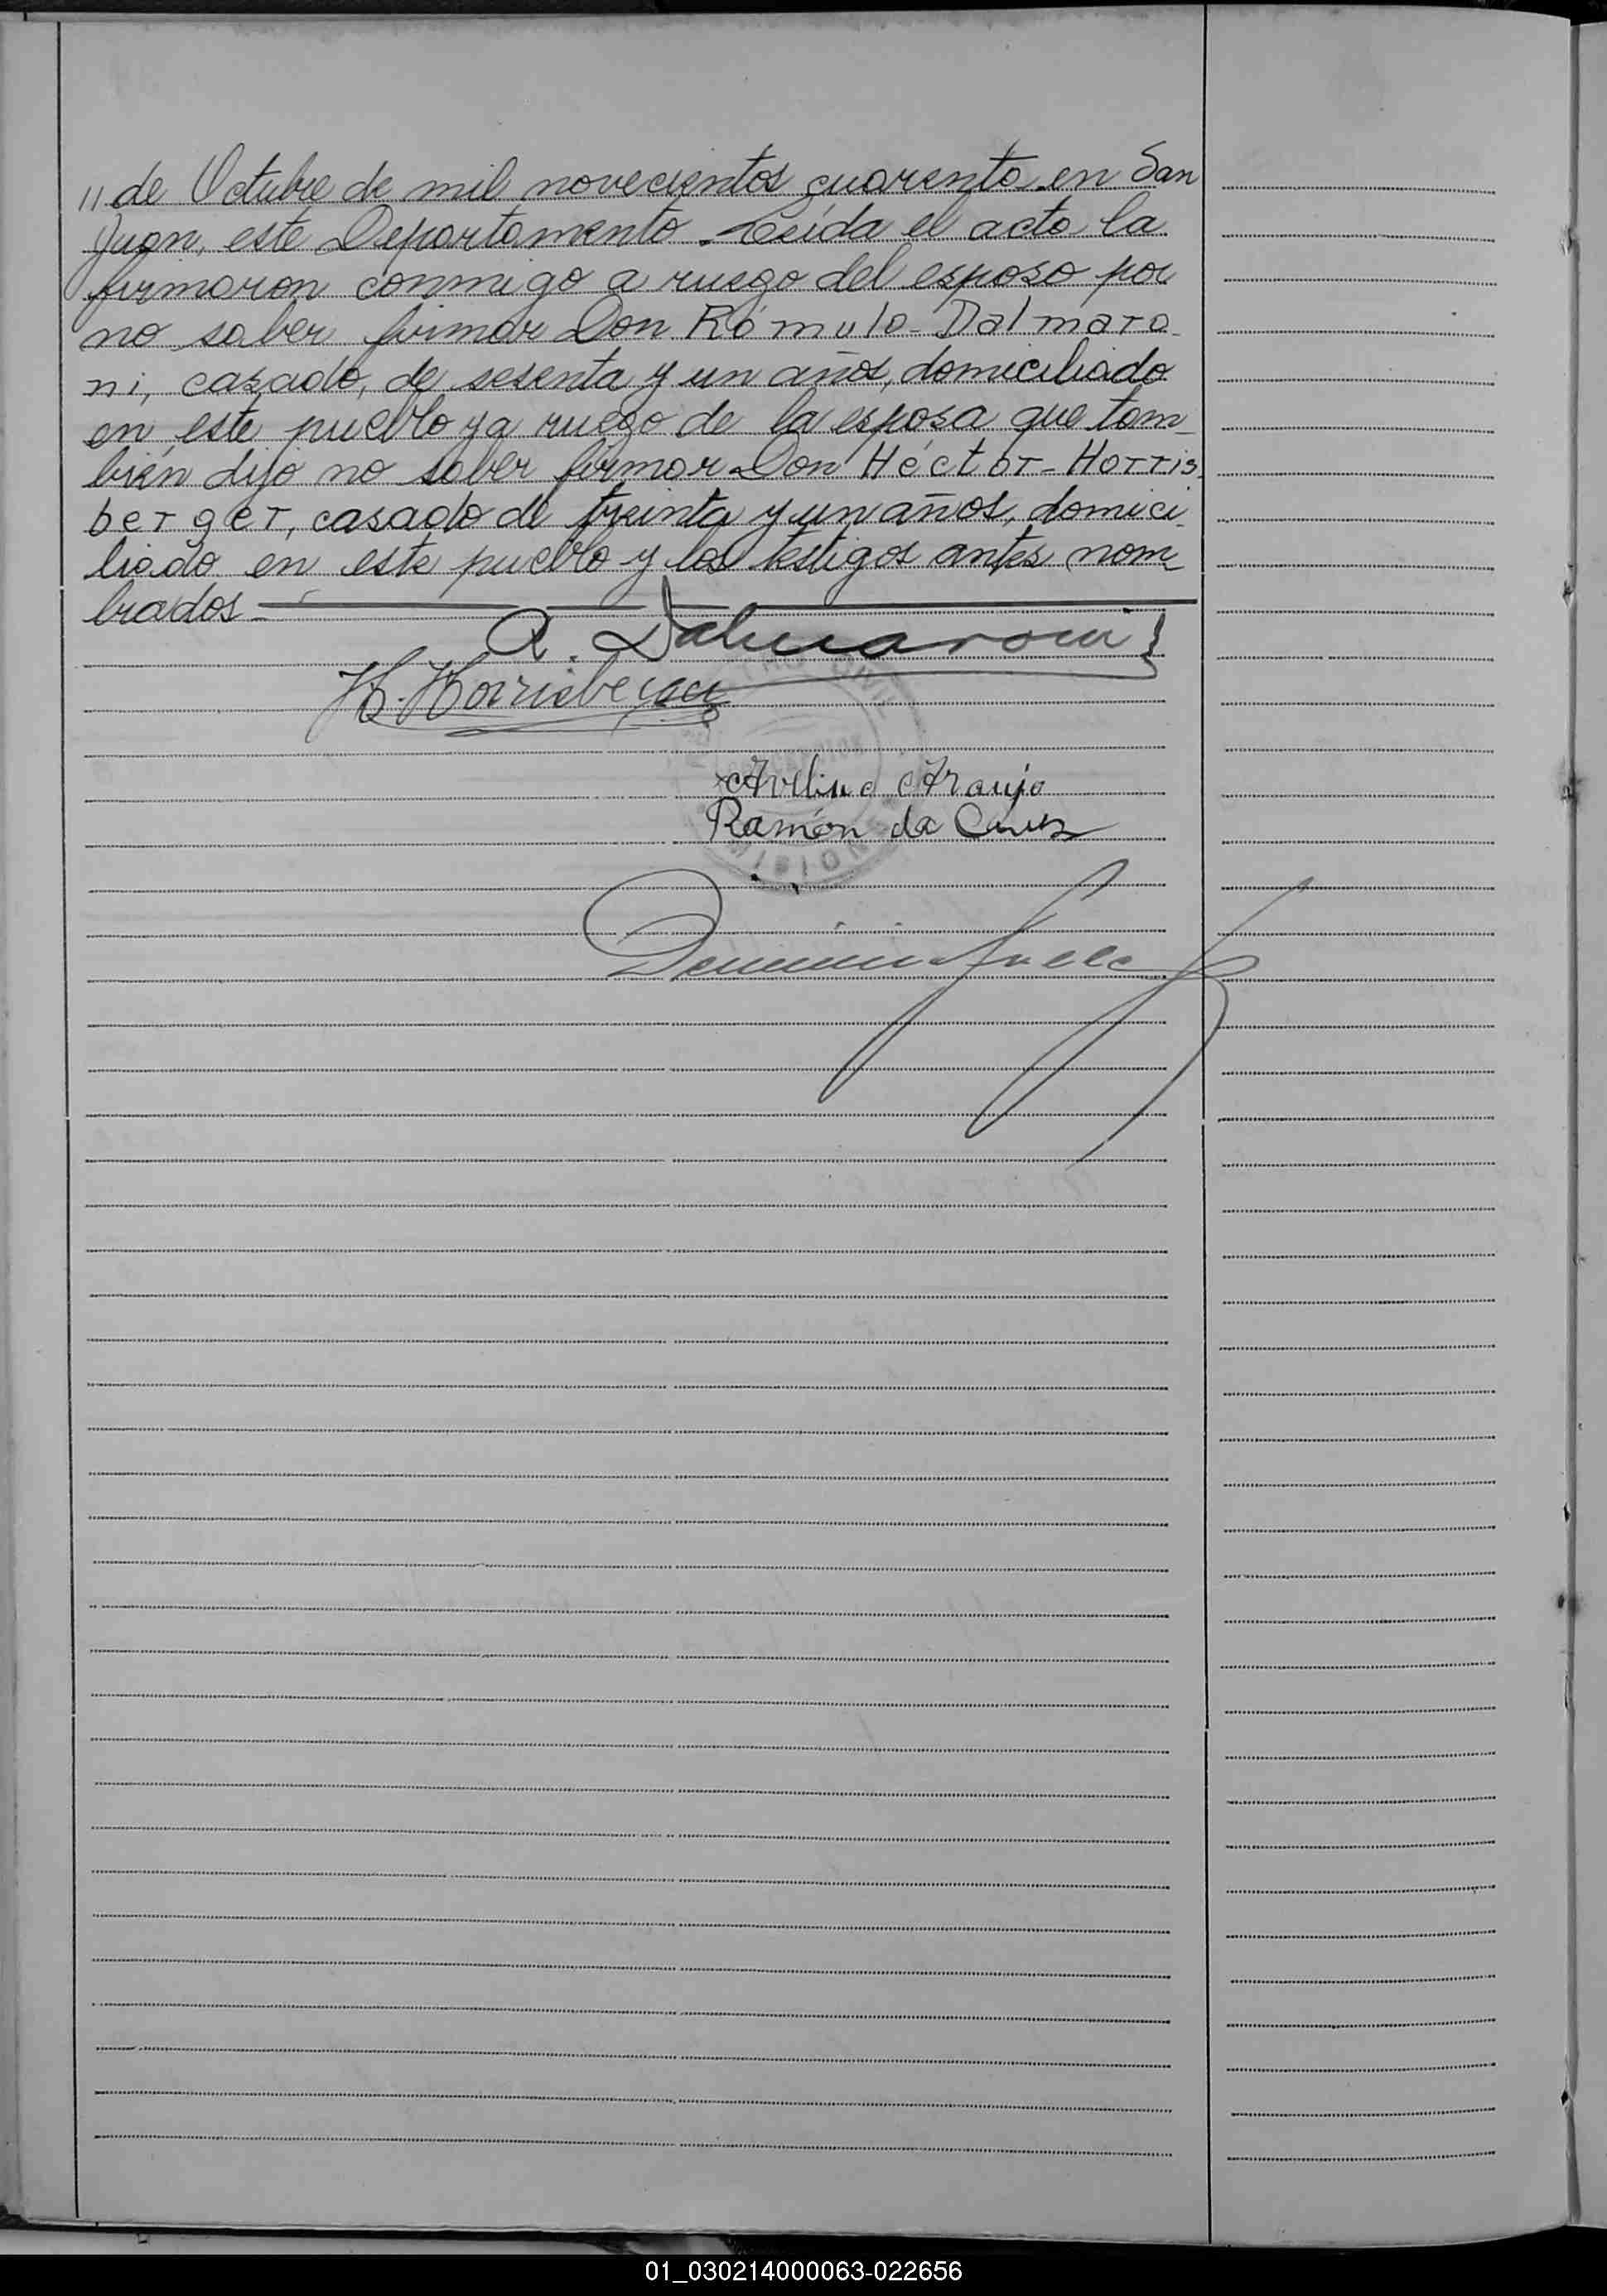 " de Octubre de mil novecientos cuarenta en San
Juan, este Departamento. Leída el acta la
firmaron conmigo a ruego del esposo por
no saber firmar Don Rómulo-Dalmaro
ni, casado, de sesenta y un años, domiciliado
en este pueblo y a ruego de la esposa que tam_
bién dijo no saber firmar Don Héctor-Horris
berger, casado de treinta y un años, domici_
liado en este pueblo y los testigos antes nom_
brados_
R. Dalmaroni
H. Horrisberger
Avelino Araujo
Ramón da Cruz
MISIONES
01_030214000063-022656